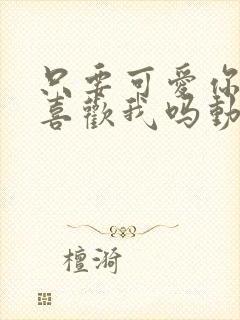 只要可愛你
喜歡我吗動
檀漪